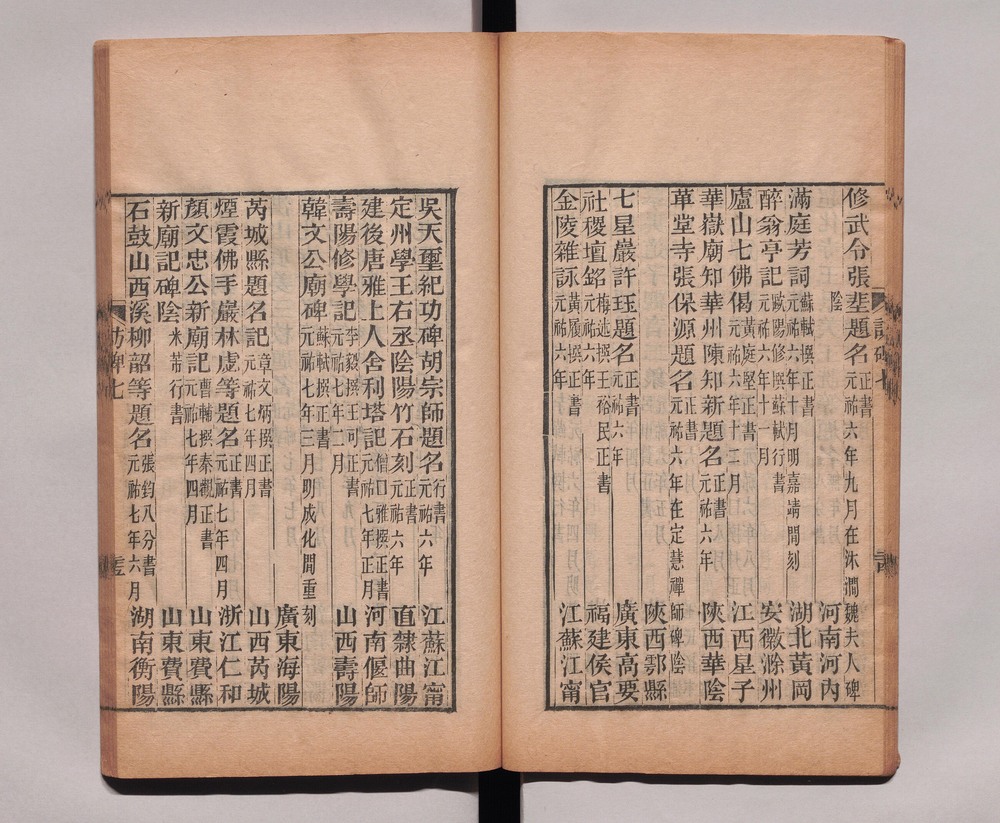 修武令張𦸐題名正書 元祐六年九月在沐澗魏夫人碑陰 河南河內
滿庭芳詞蘇軾撨正書 元祐六年十月明嘉靖間刻 湖北黃岡
醉翁亭記歐陽修撰蘇軾行書 元祐六年十一月 安徽滁州
廬山七佛偈黃庭堅正書 元祐六年十二月 江西星子
華嶽廟知華州陳知新題名正書 元祐六年 陝西華陰
草堂寺張保源題名正書 元祐六年在定慧禪師碑陰 陝西鄠縣
七星巖許珏題名正書 元祐六年 廣東高要
社稷壇銘梅述撰王裕民正書 元祐六年 福建侯官
金陵雜詠黃履撰正書 元祐六年 江蘇江甯
訪碑七
吳天璽紀功碑胡宗師題名行書 元祐六年 江蘇江甯
定州學王右丞陰陽竹石刻正書 元祐六年 直隸曲陽
建後唐雅上人舍利塔記僧口雅撰正書 元祐七年正月 河南偃師
壽陽修學記李毅撰王可正書 元祐七年二月 山西壽陽
韓文公廟碑蘇軾撰正書 元祐七年三月明成化間重刻 廣東海陽
芮城縣題名記章文炳撰正書 元祐七年四月 山西芮城
煙霞佛手巖林虙等題名正書 元祐七年四月 浙江仁和
顏文忠公新廟記曹輔撰秦觀正書 元祐七年四月 山東費縣
新廟記碑陰米芾行書 山東費縣
石鼓山西溪柳韶等題名張鈞八分書 元祐七年六月 湖南衡陽
訪碑七